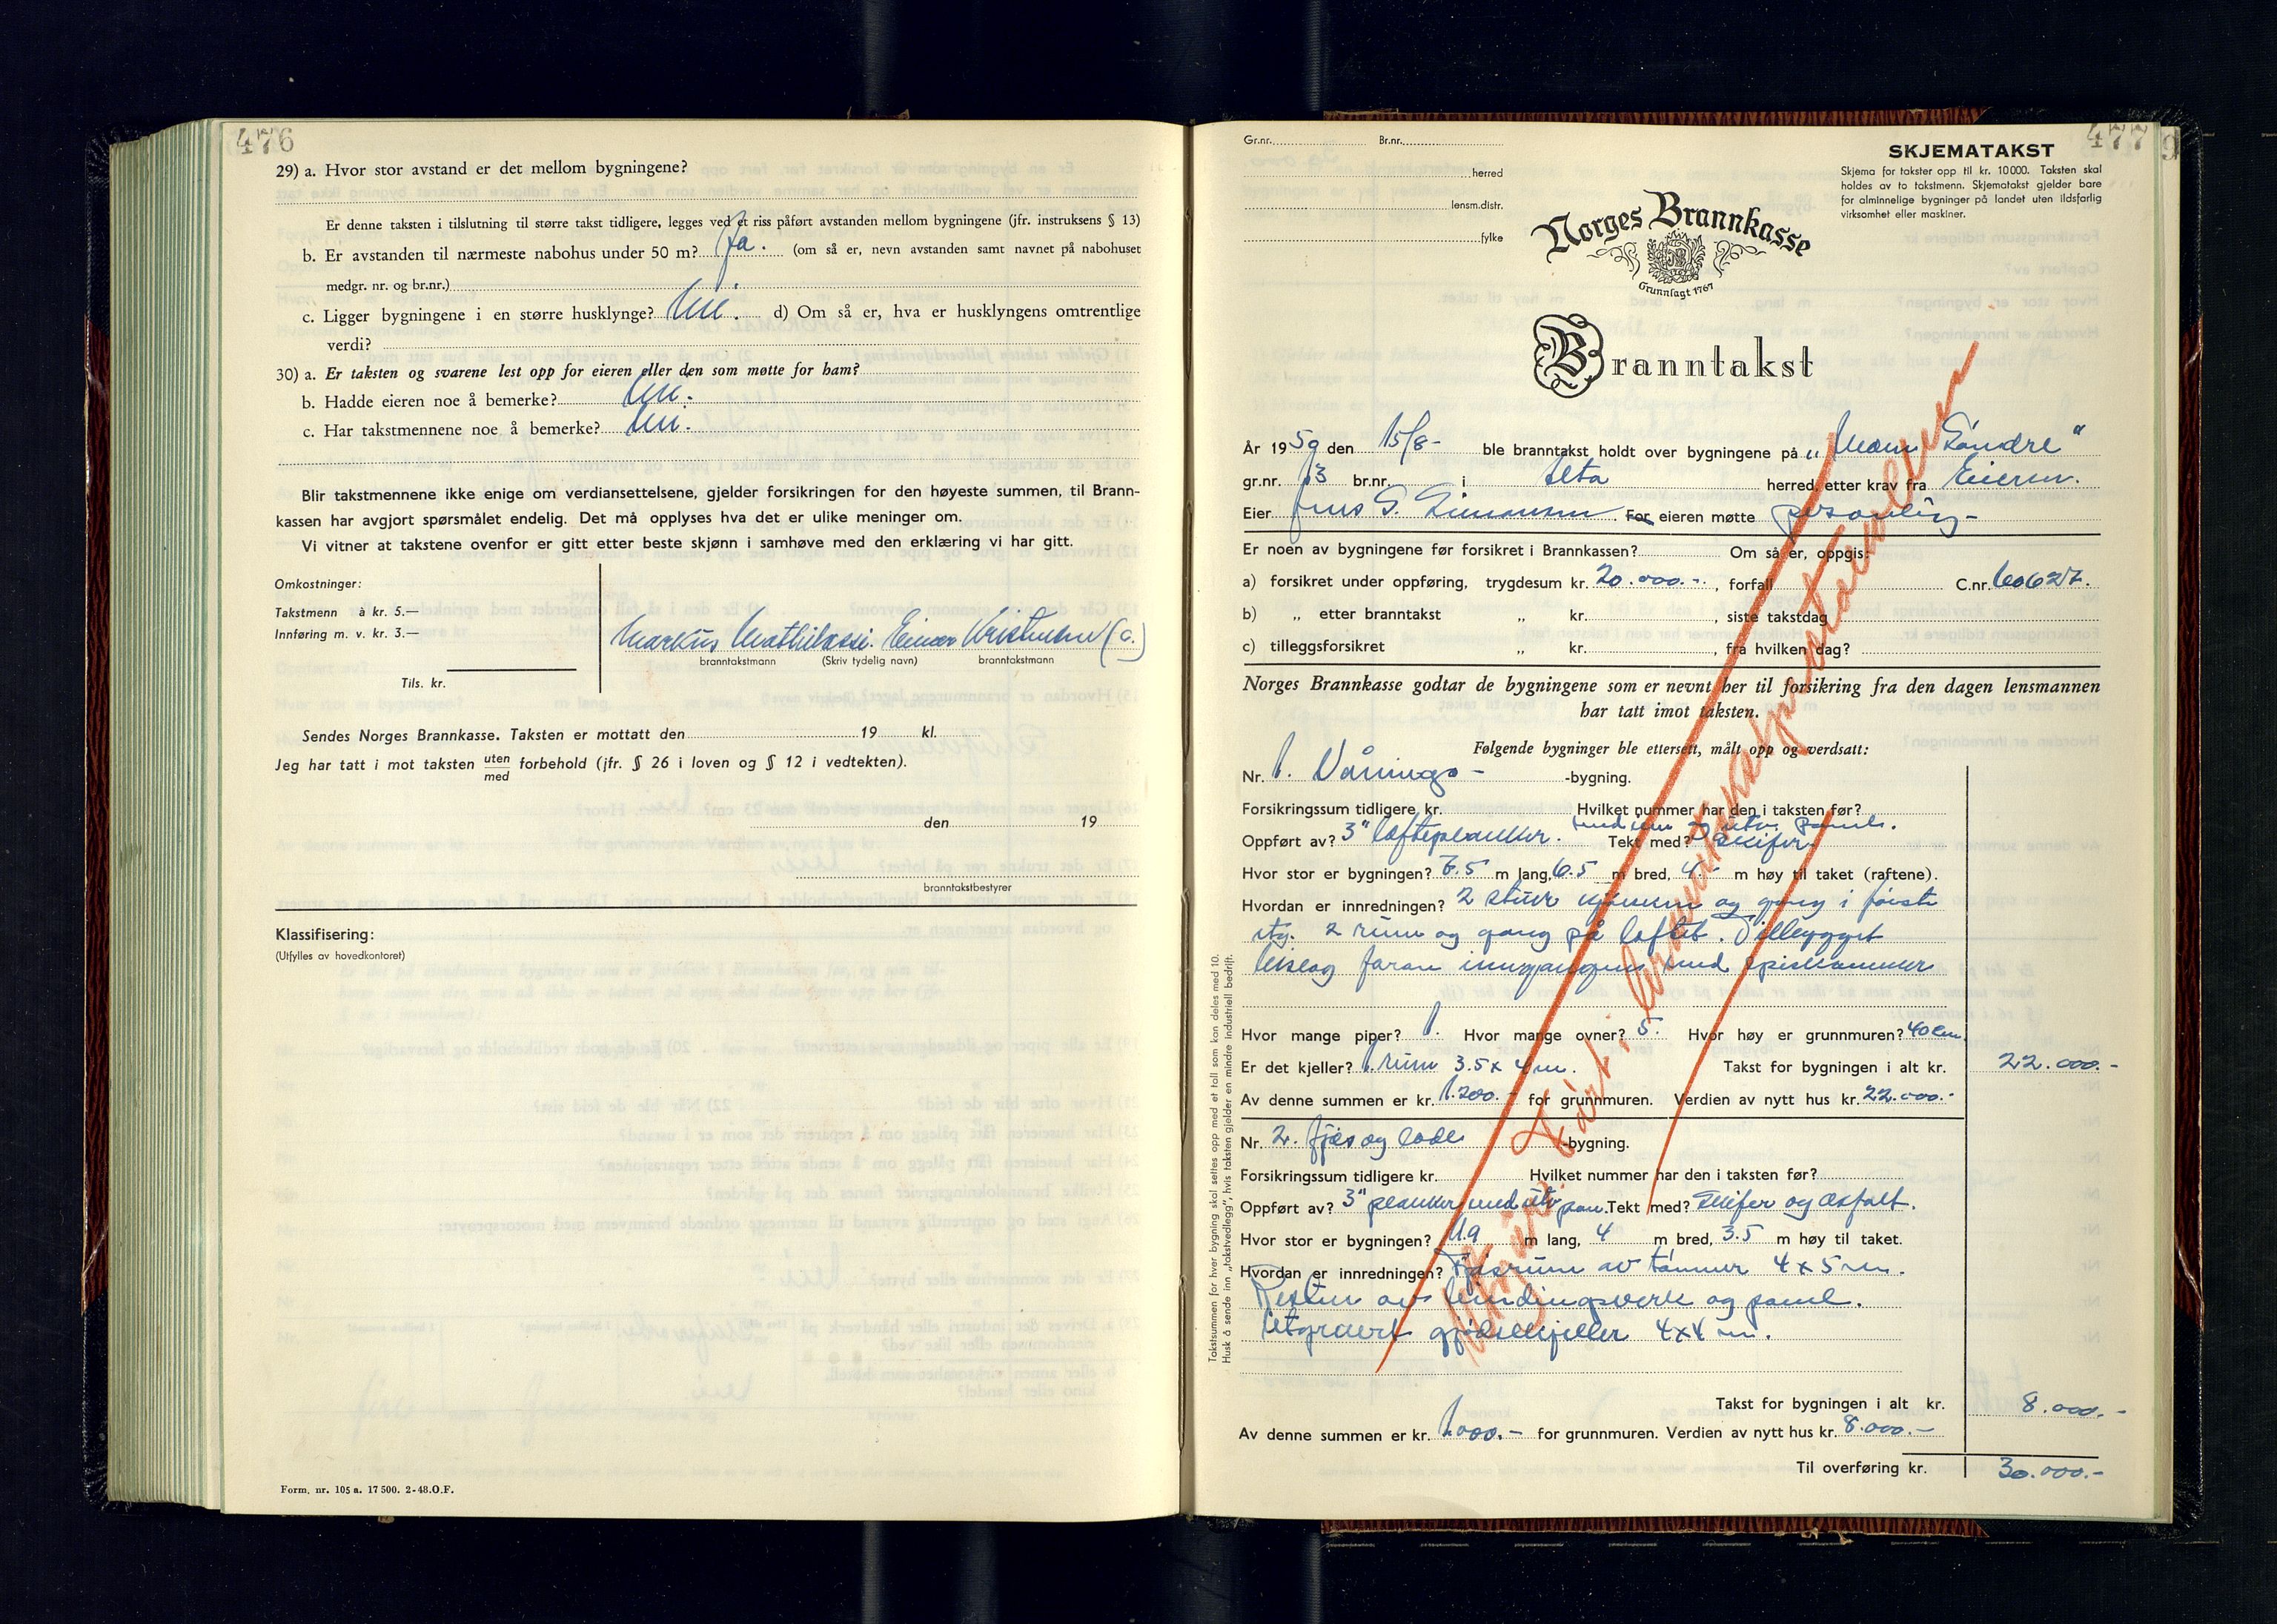 476
29) a. Hvor stor avstand er det mellom bygningene?
Er denne taksten i tilslutning til større takst tidligere, legges ved et riss påført avstanden mellom bygningene (jfr. instruksens § 13)
b. Er avstanden til nærmeste nabohus under 50 m? Ja. (om så er, nevn avstanden samt navnet på nabohuset
medgr. nr. og br.nr.)
c. Ligger bygningene i en større husklynge? Nei. d) Om så er, hva er husklyngens omtrentlige
verdi?
30) a. Er taksten og svarene lest opp for eieren eller den som møtte for ham?
b. Hadde eieren noe å bemerke? Nei.
c. Har takstmennene noe å bemerke? Nei.
Blir takstmennene ikke enige om verdiansettelsene, gjelder forsikringen for den høyeste summen, til Brann-
kassen har avgjort spørsmålet endelig. Det må opplyses hva det er ulike meninger om.
Vi vitner at takstene ovenfor er gitt etter beste skjønn i samhøve med den erklæring vi har gitt.
Omkostninger:
Takstmenn à kr. 5.—
Innføring m. v. kr. 3.—
Tils. kr.
Markus Mathilassi. Einar Kristensen
branntakstmann (Skriv tydelig navn) branntakstmann
Sendes Norges Brannkasse. Taksten er mottatt den 19 kl.
Jeg har tatt i mot taksten uten
med
forbehold (jfr. § 26 i loven og § 12 i vedtekten).
den 19
branntakstbestyrer
Klassifisering:
(Utfylles av hovedkontoret)
Form. nr. 105 a. 17 500. 2-48.O.F.
477
9
Gr.nr. Br.nr.
herred
lensm.distr.
fylke
SKJEMATAKST
Skjema for takster opp til kr. 10000. Taksten skal
holdes av to takstmenn. Skjematakst gjelder bare
for alminnelige bygninger på landet uten ildsfarlig
virksomhet eller maskiner.
Norges Brannkasse
Grunnlagt 1767
Branntakst
År 1959 den 15/8- ble branntakst holdt over bygningene på „ Søndre"
gr.nr. 13 br.nr. i Alta herred, etter krav fra Eieren.
Eier Jens S. Simonsen. For eieren møtte personlig -
Er noen av bygningene før forsikret i Brannkassen? Om så er, oppgis:
a) forsikret under oppføring, trygdesum kr. 20.000.-, forfall C.nr.
b) „ etter branntakst „ kr. , siste takstdag
c) tilleggsforsikret „ kr. , fra hvilken dag?
Norges Brannkasse godtar de bygningene som er nevnt her til forsikring fra den dagen lensmannen
har tatt imot taksten.
Følgende bygninger ble ettersett, målt opp og verdsatt:
Nr. 1. Vånings- -bygning.
Forsikringssum tidligere kr. Hvilket nummer har den i taksten før?
Oppført av? 3" lafteplanker. utv. panel. Tekt med? Skifer
Hvor stor er bygningen? 7.5 m lang, 6.5 m bred, 4.- m høy til taket (raftene).
Hvordan er innredningen? 2 stuer kjøkken og gang i første
etg. 2 rum og gang på loftet. Tilbygget
foran inngangen med spiskammer
Hvor mange piper? 1. Hvor mange ovner? 5. Hvor høy er grunnmuren? 40 cm.
Er det kjeller? 1. rum 3.5 x 4 m. Takst for bygningen i alt kr. 22.000.-
Av denne summen er kr. 1.200.- for grunnmuren. Verdien av nytt hus kr. 22.000.-
Nr. 2. fjøs og lade -bygning.
Forsikringssum tidligere kr. Hvilket nummer har den i taksten før?
Oppført av? 3" planker med utv. pan. Tekt med? Skifer og asfalt.
Hvor stor er bygningen? 11.9 m lang, 4 m bred, 3.5 m høy til taket.
Hvordan er innredningen? Fjøsrum av tømmer 4 x 5 m.
Resten av bindingsverk og panel.
Utgravet gjødselkjeller 4x4 m.
Takst for bygningen i alt kr. 8.000.-
Av denne summen er kr. 1.000.- for grunnmuren. Verdien av nytt hus kr. 8.000.-
Til overføring kr. 30.000.-
Takstsummen for hver bygning skal settes opp med et tall som kan deles med 10.
Husk å sende inn „takstvedlegg", hvis taksten gjelder en mindre industriell bedrift.
Utgår. Ført i branntakstprotokollen